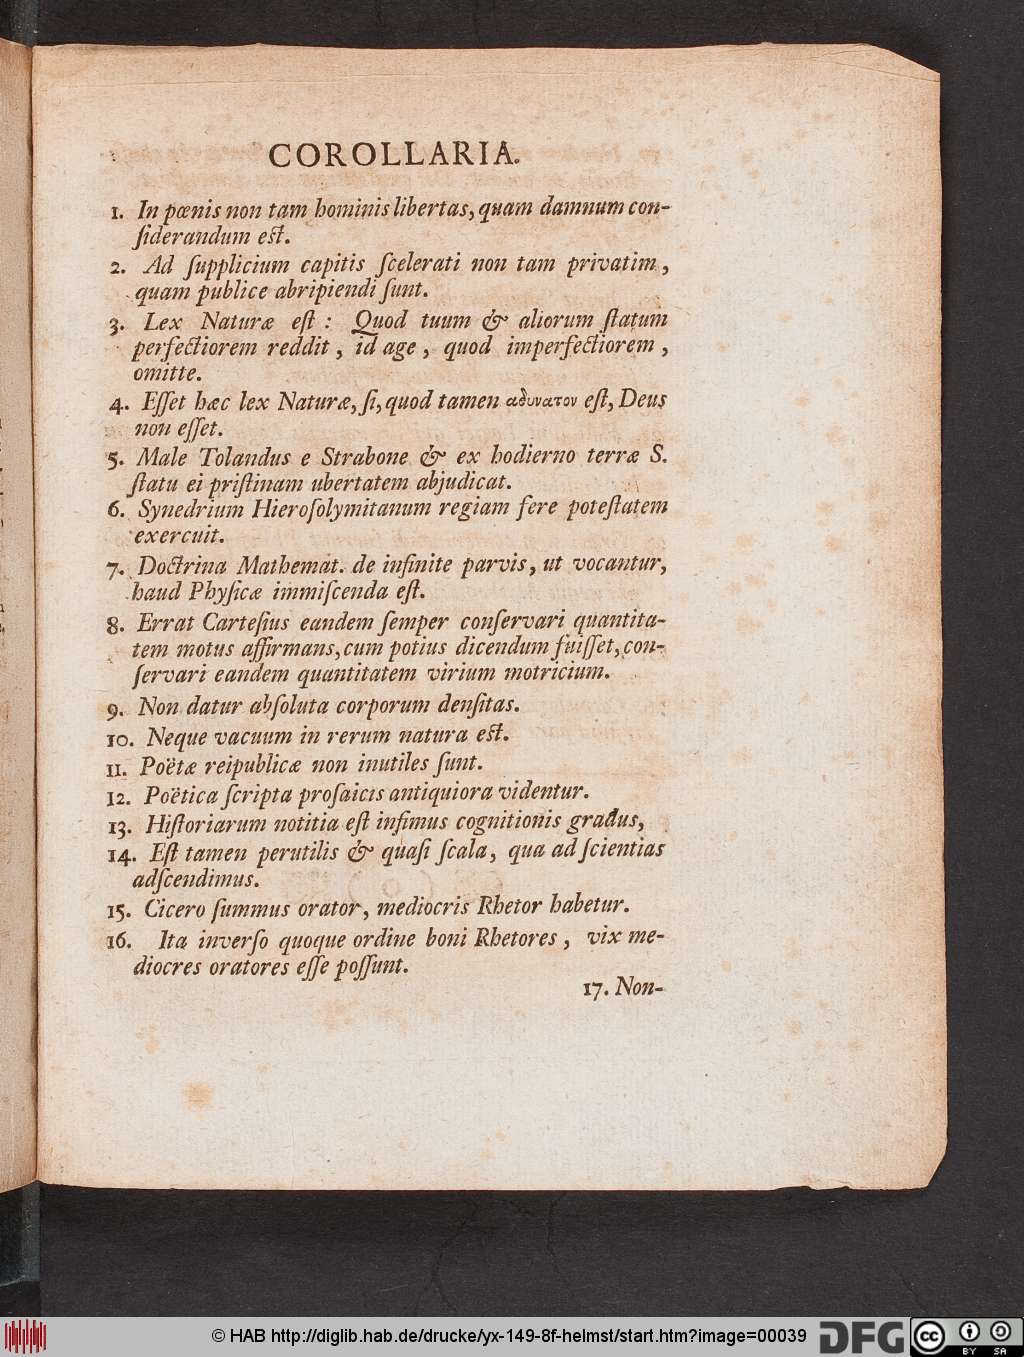 COROLLARIA.
1. In pœnis non tam hominis libertas, quam damnum con-
ſiderandum eſt.
2. Ad ſupplicium capitis ſcelerati non tam privatim,
quam publice abripiendi ſunt.
3. Lex Naturæ eſt: Quod tuum & aliorum ſtatum
perfectiorem reddit, id age, quod imperfectiorem,
omitte.
4. Eſſet hæc lex Naturæ, ſi, quod tamen αδυνατον eſt, Deus
non eſſet.
5. Male Tolandus e Strabone & ex hodierno terræ S.
ſtatu ei priſtinam ubertatem abjudicat.
6. Synedrium Hieroſolymitanum regiam fere poteſtatem
exercuit.
7. Doctrina Mathemat. de infinite parvis, ut vocantur,
haud Phyſicæ immiſcenda eſt.
8. Errat Carteſius eandem ſemper conſervari quantita-
tem motus affirmans, cum potius dicendum fuiſſet, con-
ſervari eandem quantitatem virium motricium.
9. Non datur abſoluta corporum denſitas.
10. Neque vacuum in rerum natura eſt.
11. Poëtæ reipublicæ non inutiles ſunt.
12. Poëtica ſcripta proſaicis antiquiora videntur.
13. Hiſtoriarum notitia eſt infimus cognitionis gradus,
14. Eſt tamen perutilis & quaſi ſcala, qua ad ſcientias
adſcendimus.
15. Cicero ſummus orator, mediocris Rhetor habetur.
16. Ita inverſo quoque ordine boni Rhetores, vix me-
diocres oratores eſſe poſſunt.
17. Non-
© HAB http://diglib.hab.de/drucke/yx-149-8f-helmst/start.htm?image=00039
DFG
cc BY SA